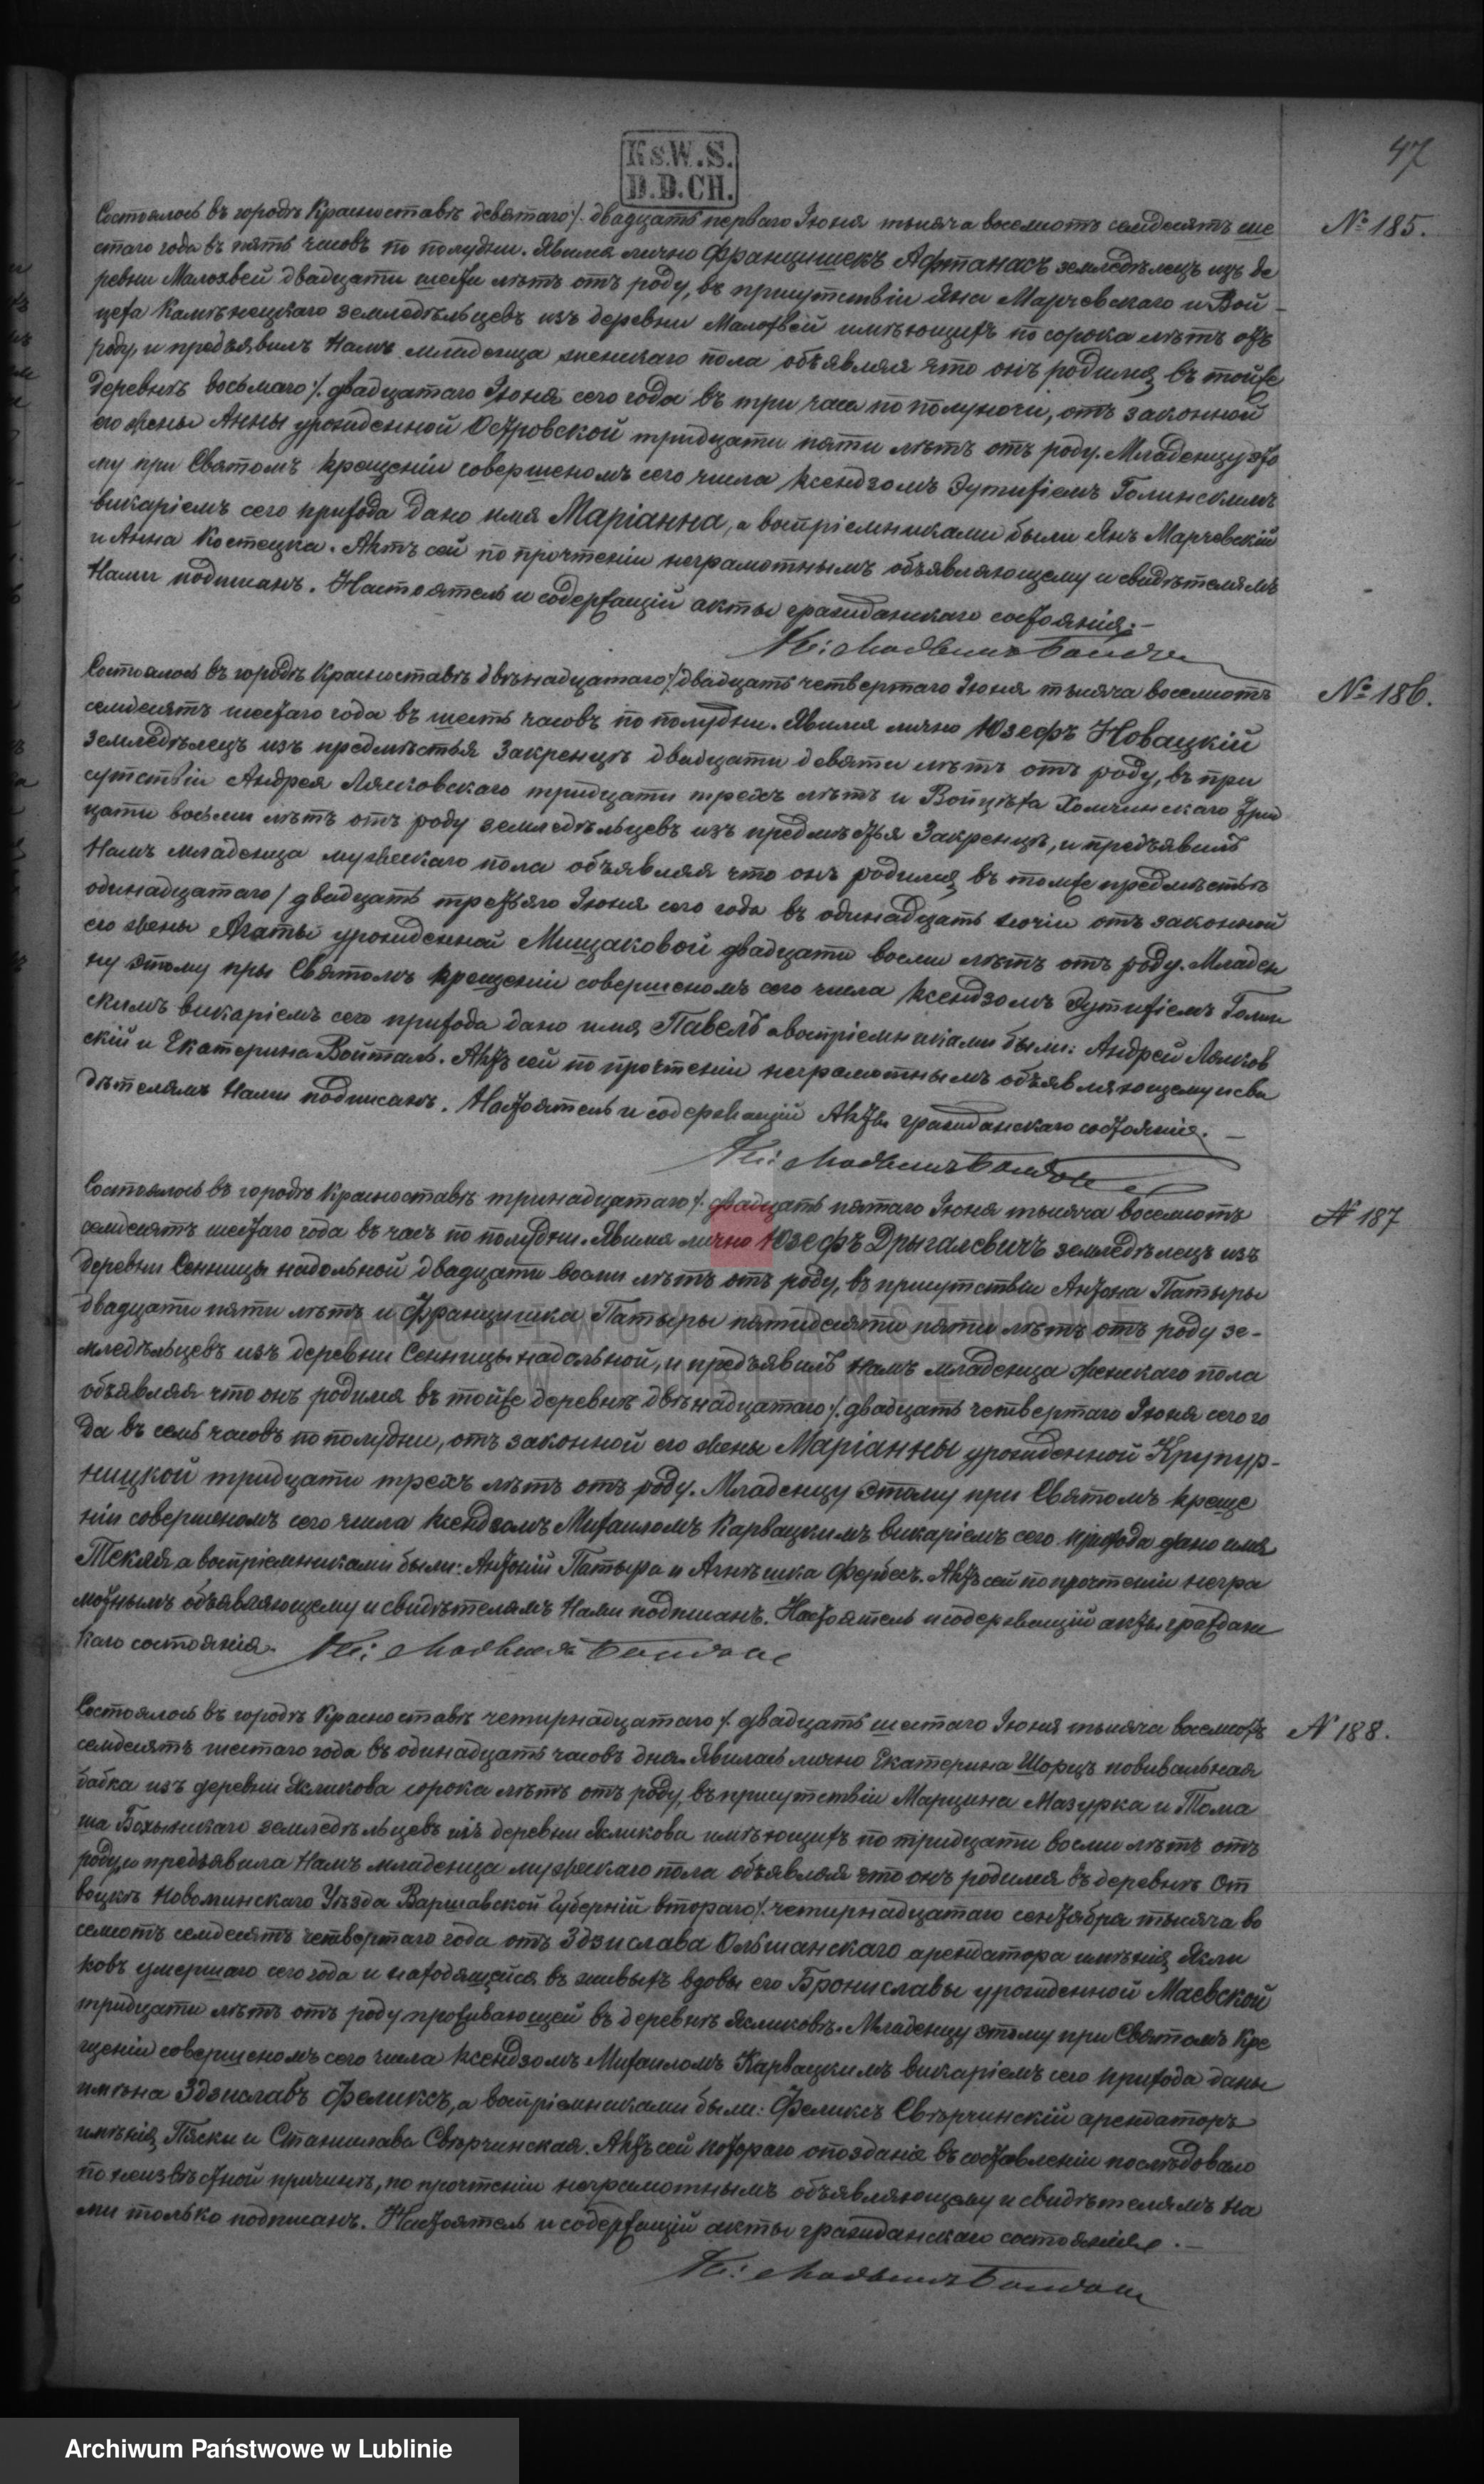 47
Ks.W.S.
D.D.CH.
№ 185.
Состоялось въ городѣ Красноставѣ девятаго /. двадцать перваго Іюня тысяча восемсотъ семдесятъ ше
стаго года въ пять часовъ по полудни. Явился лично Францишекъ Афтанасъ земледѣлецъ изъ де
ревни Малохвей двадцати шести лѣтъ отъ роду, въ присутствіи Яна Марчевскаго и Вой-
цеха Каменецкаго земледѣльцевъ изъ деревни Малохвей имѣющихъ по сорока лѣтъ отъ
роду, и предъявилъ Намъ младенца женскаго пола объявляя что онъ родился въ тойже
деревнѣ восьмаго /. двадцатаго Іюня сего года въ три часа по полуночи, отъ законной
его жены Анны урожденной Островской тридцати пяти лѣтъ отъ роду. Младенцу это
му при Святомъ крещеніи совершеномъ сего числа Ксендзомъ Эутихіемъ Голинскимъ
викаріемъ сего прихода дано имя Маріанна, а воспріемниками были Янъ Марчевскій
и Анна Костецка. Актъ сей по прочтеніи неграмотнымъ объявляющему и свидѣтелямъ
Нами подписанъ. Настоятель и содержащій акты гражданскаго состоянія.-
№ 186.
Состоялось въ городѣ Красноставѣ двѣнадцатаго / двадцать четвертаго Іюня тысяча восемсотъ
семдесятъ шестаго года въ шесть часовъ по полудни. Явился лично Юзефъ Новацкій
земледѣлецъ изъ предмѣстья Закренцѣ двадцати девяти лѣтъ отъ роду, въ при
сутствіи Андрея Лясковскаго тридцати трехъ лѣтъ и Войцѣха Хомчинскаго трид
цати восьми лѣтъ отъ роду земледѣльцевъ изъ предмѣстья Закренцѣ, и предъявилъ
Намъ младенца мужескаго пола объявляя что онъ родился въ томже предмѣстьѣ
одинадцатаго / двадцать третьяго Іюня сего года въ одинадцать ночіи отъ законной
его жены Агаты урожденной Мищаковой двадцати восми лѣтъ отъ роду. Младен
цу этому пры Святомъ крещеніи совершеномъ сего числа Ксендзомъ Эутихіемъ Голин
скимъ викаріемъ сего прихода дано имя Павелъ а воспріемниками были: Андрей Лясков
скій и Екатерина Войталь. Актъ сей по прочтеніи неграмотнымъ объявляющему и сви
дѣтелямъ Нами подписанъ. Настоятель и содержащій Акты гражданскаго состоянія.-
№ 187
Состоялось въ городѣ Красноставѣ тринадцатаго /. двадцать пятаго Іюня тысяча восемсотъ
семдесятъ шестаго года въ часъ по полудни. Явился лично Юзефъ Дрыгалевичъ земледѣлецъ изъ
деревни Сенницы надольной двадцати восми лѣтъ отъ роду, въ присутствіи Антона Патыры
двадцати пяти лѣтъ и Францишка Патыры пятидесяти пяти лѣтъ отъ роду зе-
мледѣльцевъ изъ деревни Сенницы надольной, и предъявилъ Намъ младенца женскаго пола
объявляя что онъ родился въ тойже деревнѣ двѣнадцатаго /. двадцать четвертаго Іюня сего го
да въ семь часовъ по полудни, отъ законной его жены Маріанны урожденной Крупур-
ницкой тридцати трехъ лѣтъ отъ роду. Младенцу этому при Святомъ креще
ніи совершеномъ сего числа Ксендзомъ Михаиломъ Карвацкимъ викаріемъ сего прихода дано имя
Текля а воспріемниками были: Антоній Патыра и Агнѣшка Фербесъ. Актъ сей по прочтеніи негра
мотнымъ объявляющему и свидѣтелямъ Нами подписанъ. Настоятель и содержащій акты граждан
каго состоянія.
№ 188.
Состоялось въ городѣ Красноставѣ четырнадцатаго /. двадцать шестаго Іюня тысяча восемсотъ
семдесятъ шестаго года въ одинадцать часовъ дня. Явилась лично Екатерина Шорцъ повивальная
бабка изъ деревни Ясликова сорока лѣтъ отъ роду, въ присутствіи Марцина Мазурка и Тома
ша Бохынскаго земледѣльцевъ изъ деревни Ясликова имѣющихъ по тридцати восми лѣтъ отъ
роду, и предъявила Намъ младенца мужескаго пола объявляя что онъ родился въ деревнѣ От
воцкѣ Новоминскаго Уѣзда Варшавской Губерній втораго /. четырнадцатаго сентября тысяча во
семсотъ семдесятъ четвертаго года отъ Здзислава Ольшанскаго арендатора имѣнія Ясли
ковъ умершаго сего года и находящейся въ живыхъ вдовы его Брониславы урожденной Маевской
тридцати лѣтъ отъ роду проживающей въ деревнѣ Ясликовѣ. Младенцу этому при Святомъ Кре
щеніи совершеномъ сего числа Ксендзомъ Михаиломъ Карвацкимъ викаріемъ сего прихода даны
имѣна Здзиславъ Феликсъ, а воспріемниками были: Феликсъ Свѣрчинскій арендаторъ
имѣнія Пяски и Станислава Свѣрчинская. Актъ сей котораго опозданіе въ составленіи послѣдовало
по неизвѣстной причинѣ, по прочтеніи неграмотнымъ объявляющему и свидѣтелямъ На
ми только подписанъ. Настоятель и содержащій акты гражданскаго состоянія.-
ARCHIWUM PAŃSTWOWE
W LUBLINIE
Archiwum Państwowe w Lublinie